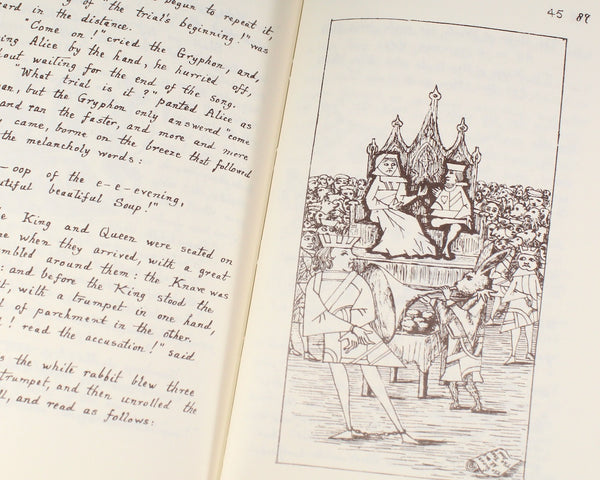 begun to repeat it,
of "the trial's beginning!" was
in the distance.
"Come on!" cried the Gryphon, and,
Alice by the hand, he hurried off,
waiting for the end of the song.
"What trial is it?" panted Alice as
but the Gryphon only answered "come
and ran the faster, and more and more
came, borne on the breeze that followed
the melancholy words:
oop of the e-e-evening,
beautiful Soup!"
King and Queen were seated on
when they arrived, with a great
around them: the Knave was
: and before the King stood the
with a trumpet in one hand,
of parchment in the other.
! read the accusation!" said
the white rabbit blew three
trumpet, and then unrolled the
and read as follows:
45 89